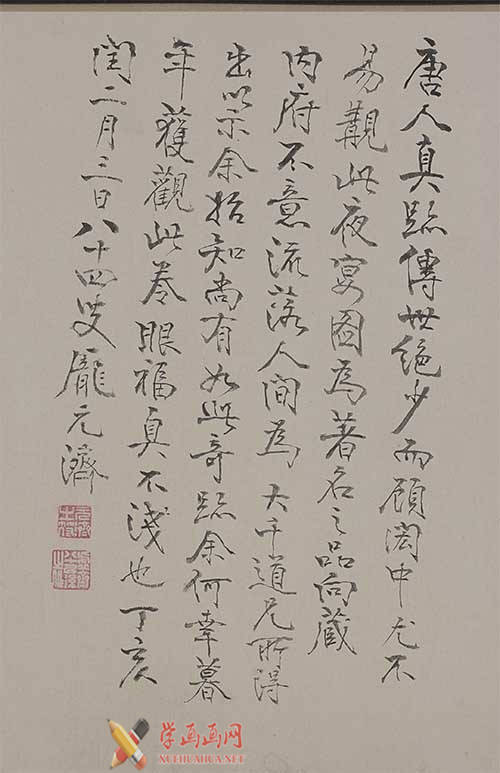 唐人真跡傳世絕少而顧閎中尤不
易覯此夜宴圖為著名之品向藏
內府不意流落人間為大千道兄所得
出以示余始知尚有如此奇跡余何幸暮
年獲觀此卷眼福真不淺也丁亥
閏二月三日八十四叟龐元濟
学画画网
XUEHUAHUA.NET